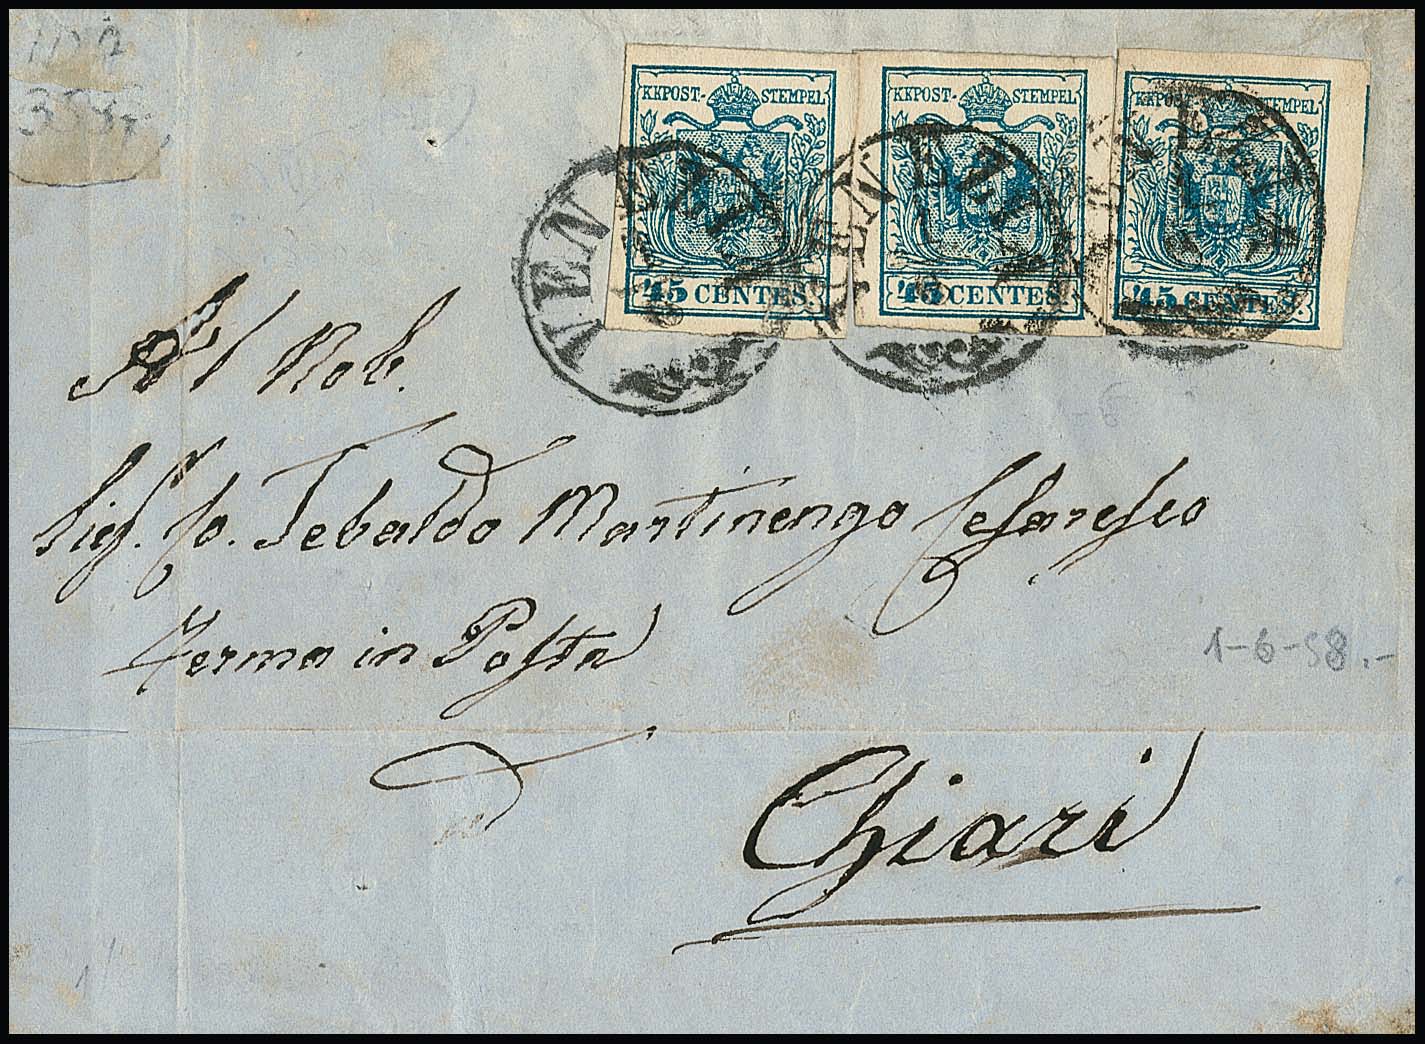 KKPOST-STEMPEL KKPOST-STEMPEL KKPOST-STEMPEL
VENEZIA VENEZIA VENEZIA
45 CENTES. 45 CENTES. 45 CENTES.
Al Nob.
Sig. Co. Tebaldo Martinengo Cesaresco
Ferma in Posta
1-6-58.-
Chiari